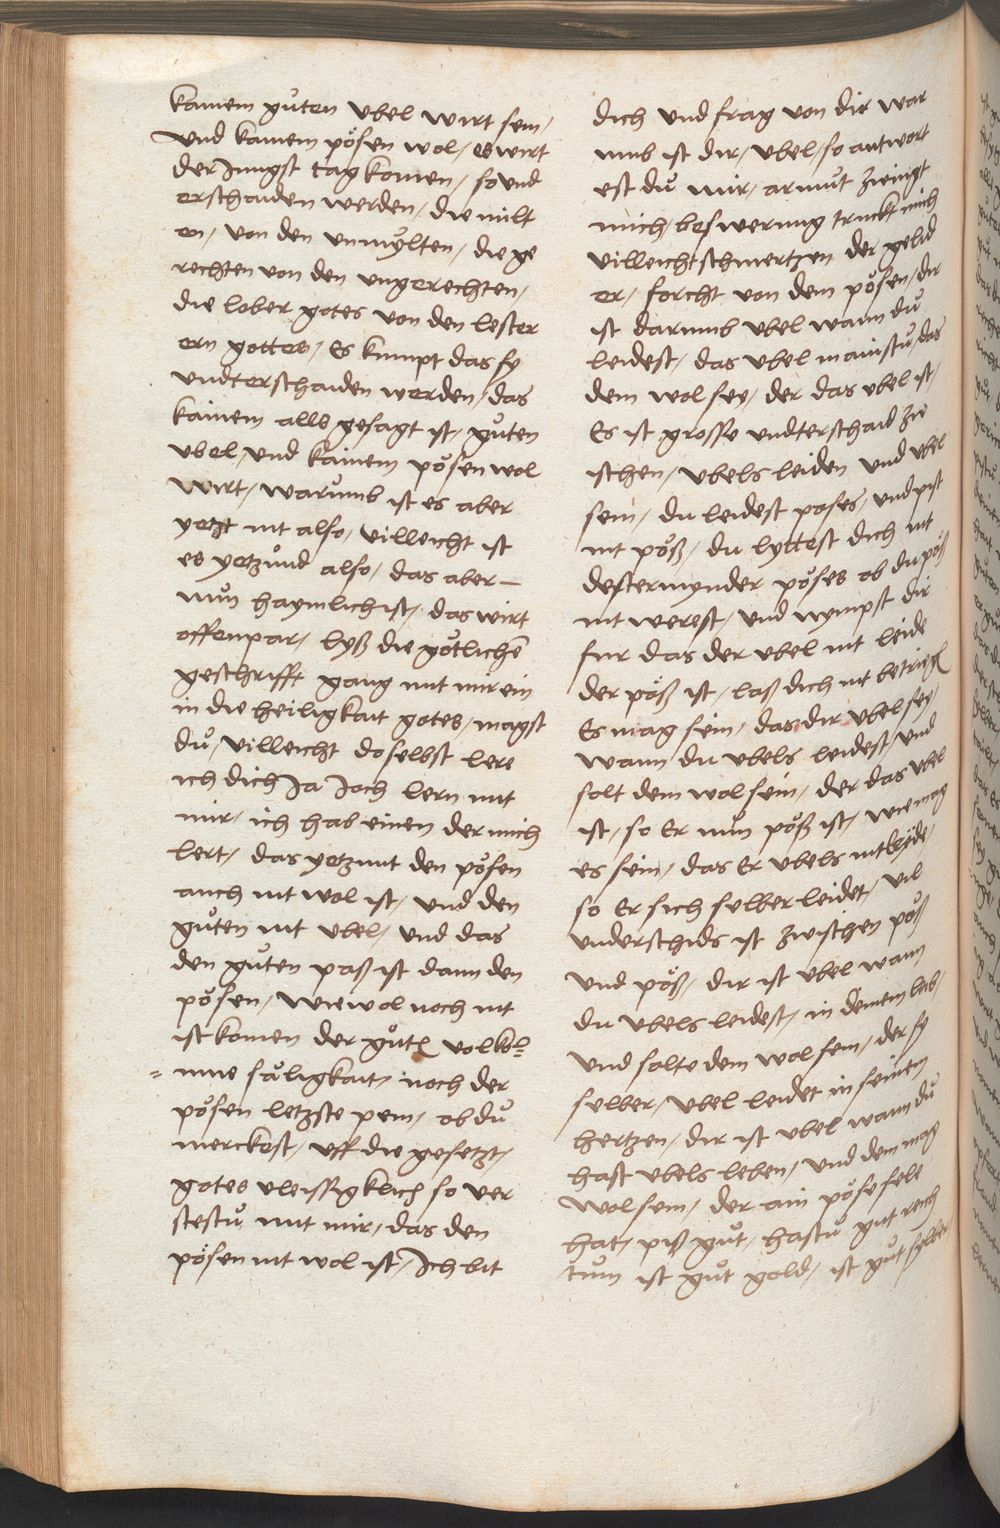 kainem guͦten vbel wirt sein/
vnd kainem poͤsen wol/ es wirt
der Jungst tag komen/ so vnd
erschaiden werden/ die milt
en/ von den vnmylten/ die ge
rechten von den vngerechten/
die lober gotes von den lester
ern gottes/ Es kumpt das sy
vndterschaiden werden/ das
kainem alls gesagt ist/ guͦten
vbel/ vnd kainem poͤsen wol
wirt/ warumb ist es aber
yetzt nit also/ villeicht ist
es yetzund also/ das aber —
nun haymlich ist/ das wirt
offenpar/ lyß die goͤtlichen
geschrifft gang mit mir ein
in die heiligkait gotes/ magst
du/ villeicht doselbst lere
ich dich Ja Joch lern mit
mir/ ich hab einen der mich
lert/ das yetzunt den poͤsen
auch nit wol ist/ vnd den
guͦten nit vbel/ vnd das
den guͦten paß ist dann den
poͤsen/ wiewol noch nit
ist komen der guͦten volkol=
=mne saͤligkait/ noch der
poͤsen letzste pein/ ob du
merckest/ vff die gesetzt/
gotes vleissigklich so ver
stestu mit mir/ das den
poͤsen nit wol ist/ Ich bit
dich vnd frag von dir war
umb ist dir/ vbel/ so antwort
est du mir/ armut zwingt
mich/ beswerung truckt mich
villeicht schmertzen der gelid
er/ forcht von dem poͤsen/ dir
ist darumb vbel wann du
leidest/ das vbel mainstu/ das
dem wol sey/ der das vbel ist/
Es ist grosse vndterschaid zwi
schen/ vbels leiden vnd vbel
sein/ du leidest poses/ vnd pist
nit poͤß/ du lyttest dich nit
destermynder poͤses ob du poͤß
nit werest/ vnd nympst dir
fur das der vbel nit leide
der poͤß ist/ laß dich nit betriegen
Es mag sein/ das dir vbel sey/
wann du vbels leidest/ vnd
solt dem wol sein/ der das vbel
ist/ so Er nun poͤß ist/ wie mag
es sein/ das Er vbels nit leyde/
so Er sich selber leidet/ vil
vnderschids ist zwischen poͤß
vnd poͤß/ dir ist vbel wann
du vbels leidest/ in deinem leib/
vnd solte dem wol sein/ der sy
selber/ vbel leidet in seinen
hertzen/ dir ist vbel wann du
hast vbels leben/ vnd dem mag
wol sein/ der ain poͤse sele
hat/ piß guͦt/ hastu gut reich
tum ist guͦt gold/ ist guͦt sylber